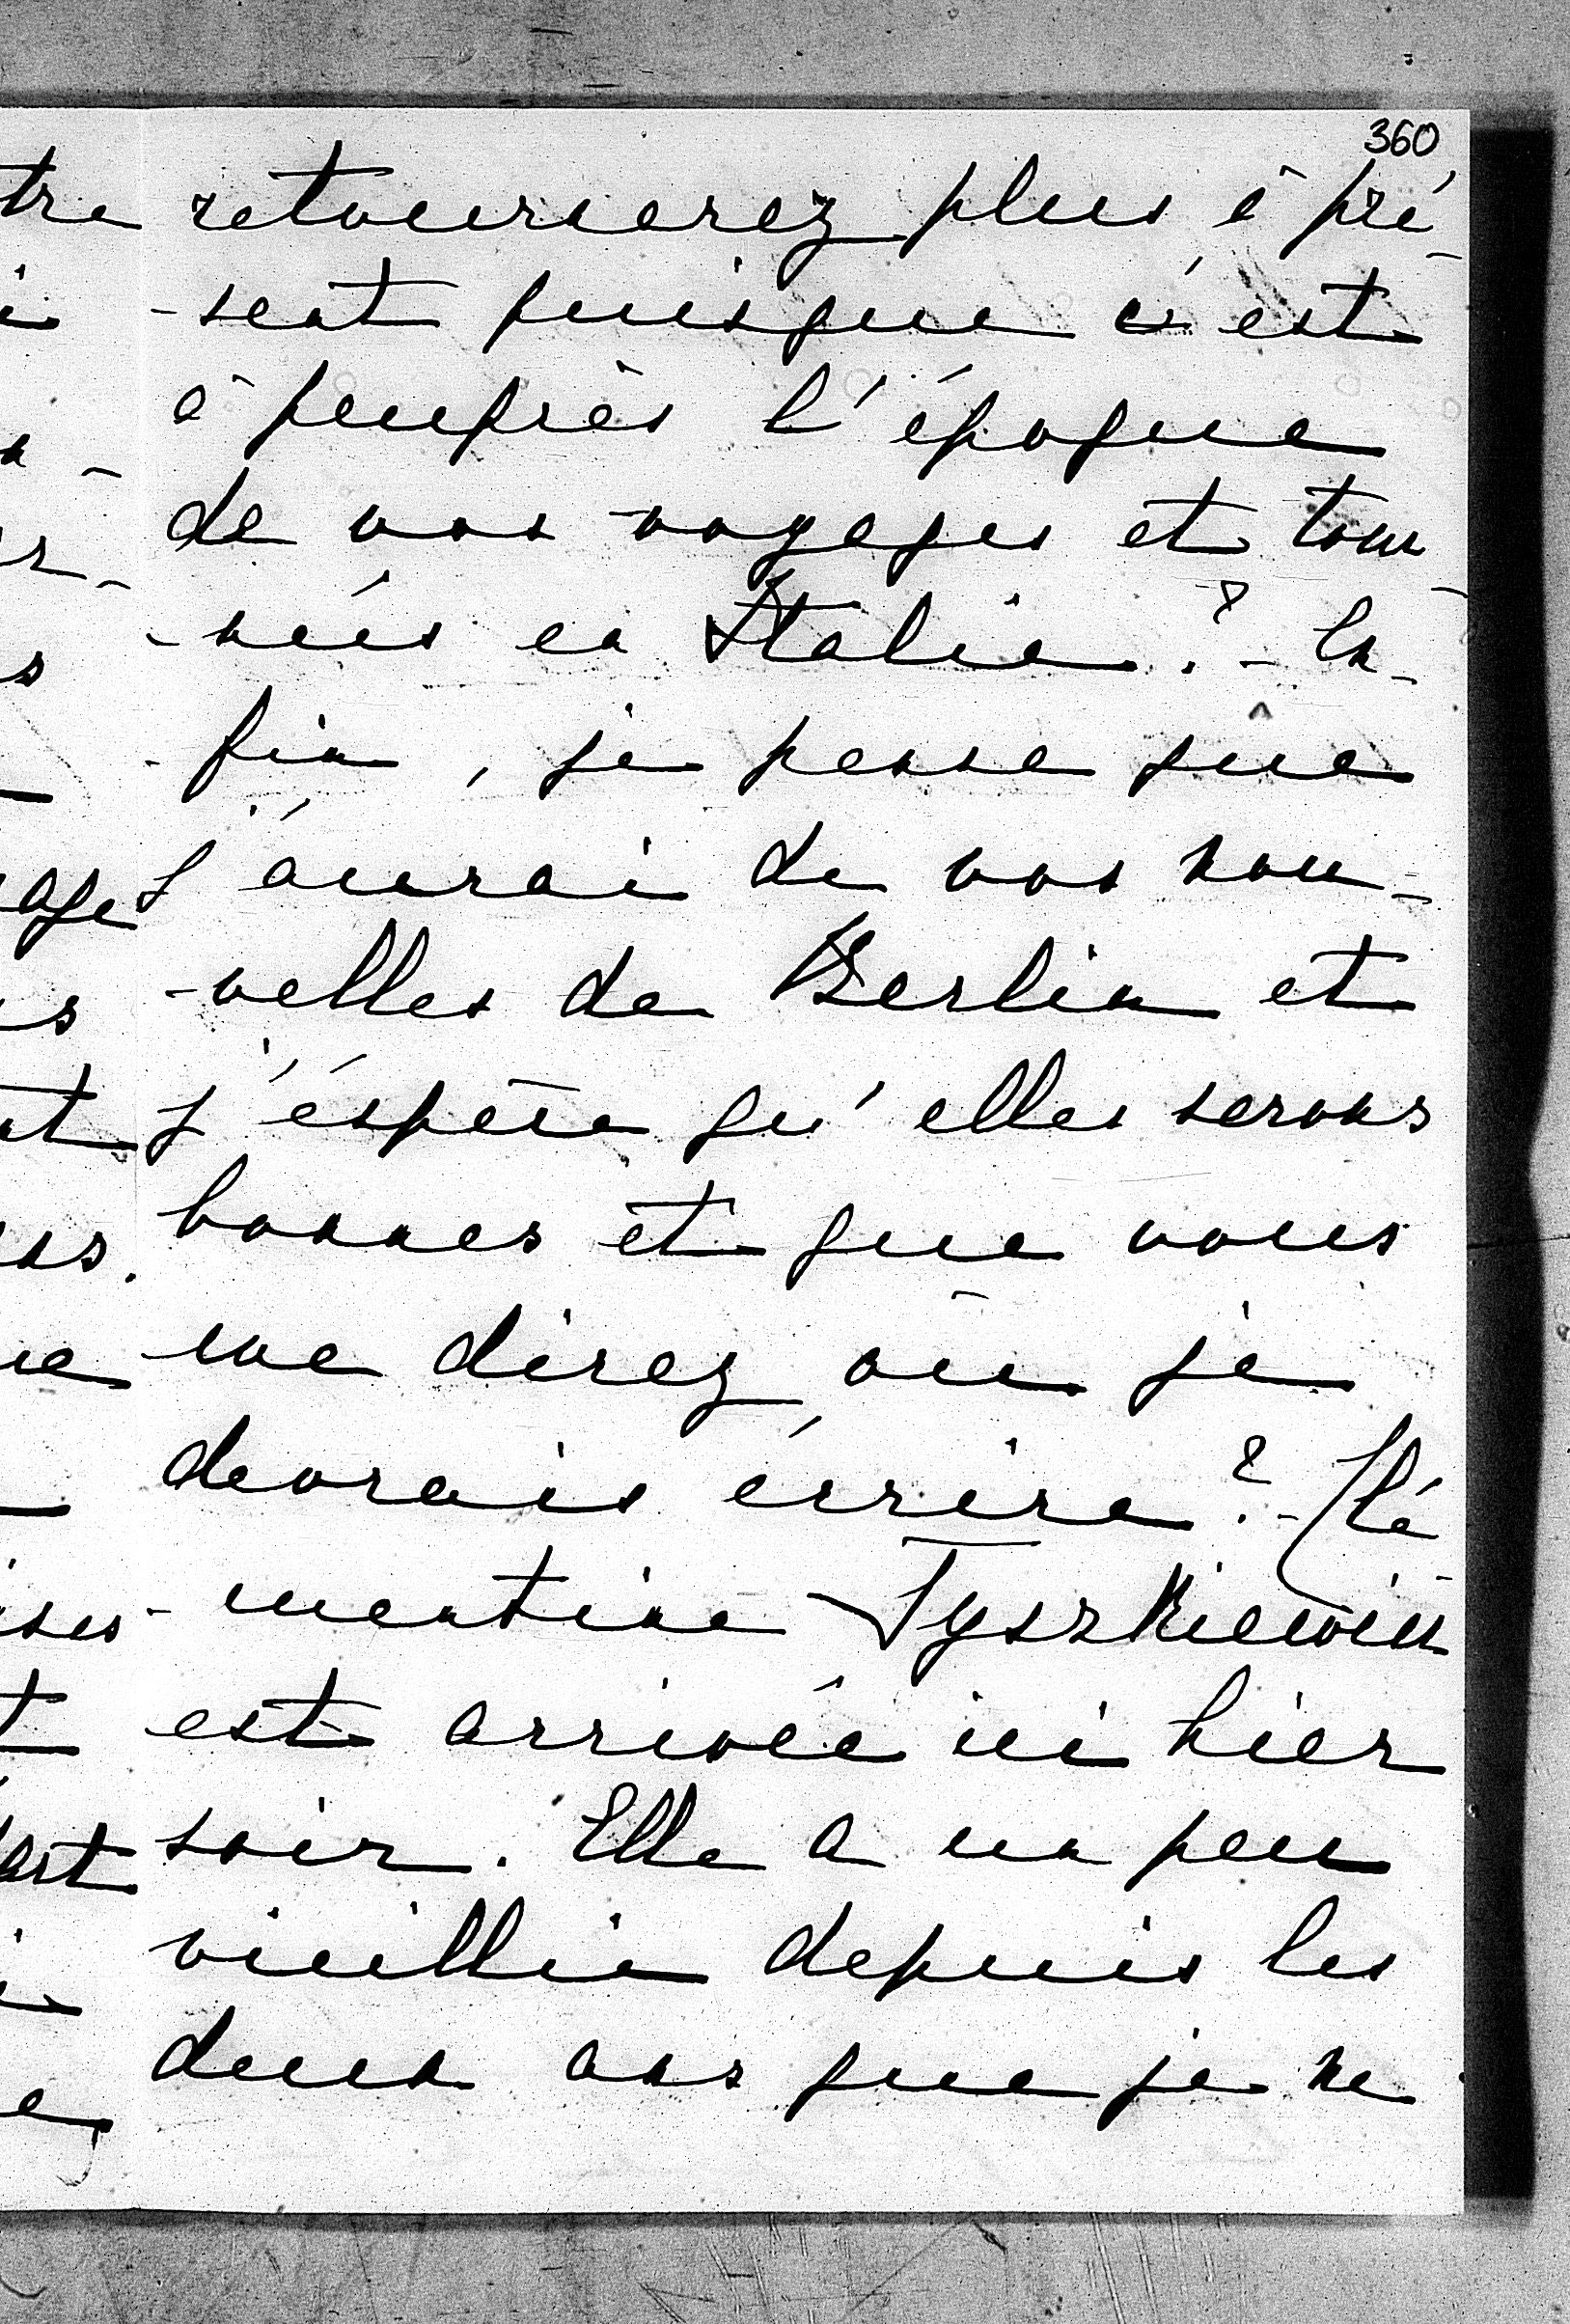 360
retournerez plus à pré-
-sent puisque c'est
à peuprès l'époque
de vos voyages et tour-
-nées en Italie ? - En-
-fin, je pense que
j'aurai de vos nou-
-velles de Berlin et
j'éspère qu'elles serons
bonnes et que vous
me direz où je
devrais écrire ? - Clé-
-mentine Tyszkiewicz
est arrivée ici hier
soir. Elle a un peu
vieillie depuis les
deux ans que je ne